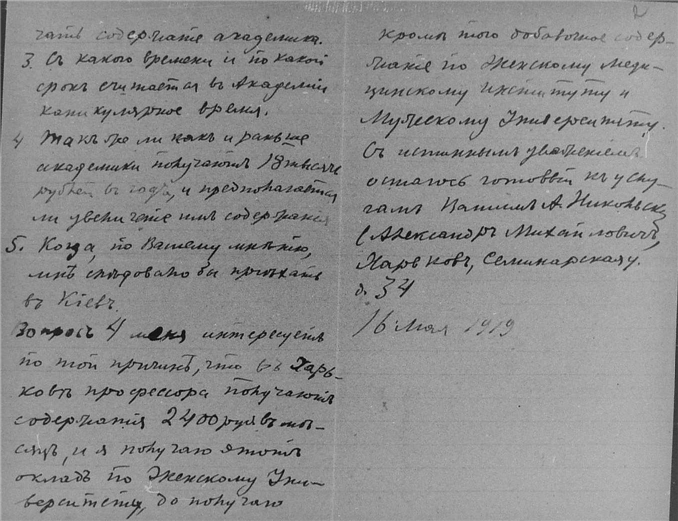 2
чать содержание академика.
3. Съ какого времени и по какой
срокъ считается въ Академіи
каникулярное время.
4 Такъ же ли какъ и раньше
академики получаютъ 18 тысячъ
рублей въ годъ, и предполагается
ли увеличение имъ содержания
5. Когда, по Вашему мнѣнію,
мнѣ слѣдовало бы пріѣхать
въ Кіевъ.
Вопросъ 4 меня интересуетъ
по той причинѣ, что въ Харь-
ковѣ профессора получаютъ
содержанія 2400 руб въ мѣ-
сяцъ, и я получаю этотъ
окладъ по Женскому Уни-
верситету, да получаю
кромѣ того добавочное содер-
жаніе по Женскому Меди-
цинскому Институту и
Мужескому Университету.
Съ истиннымъ уваженіемъ
остаюсь готовый къ услу-
гамъ Вашимъ А. Никольск
(Александръ Михайловичъ,
Харьковъ, Семинарская у.
д. 34
16 Мая 1919